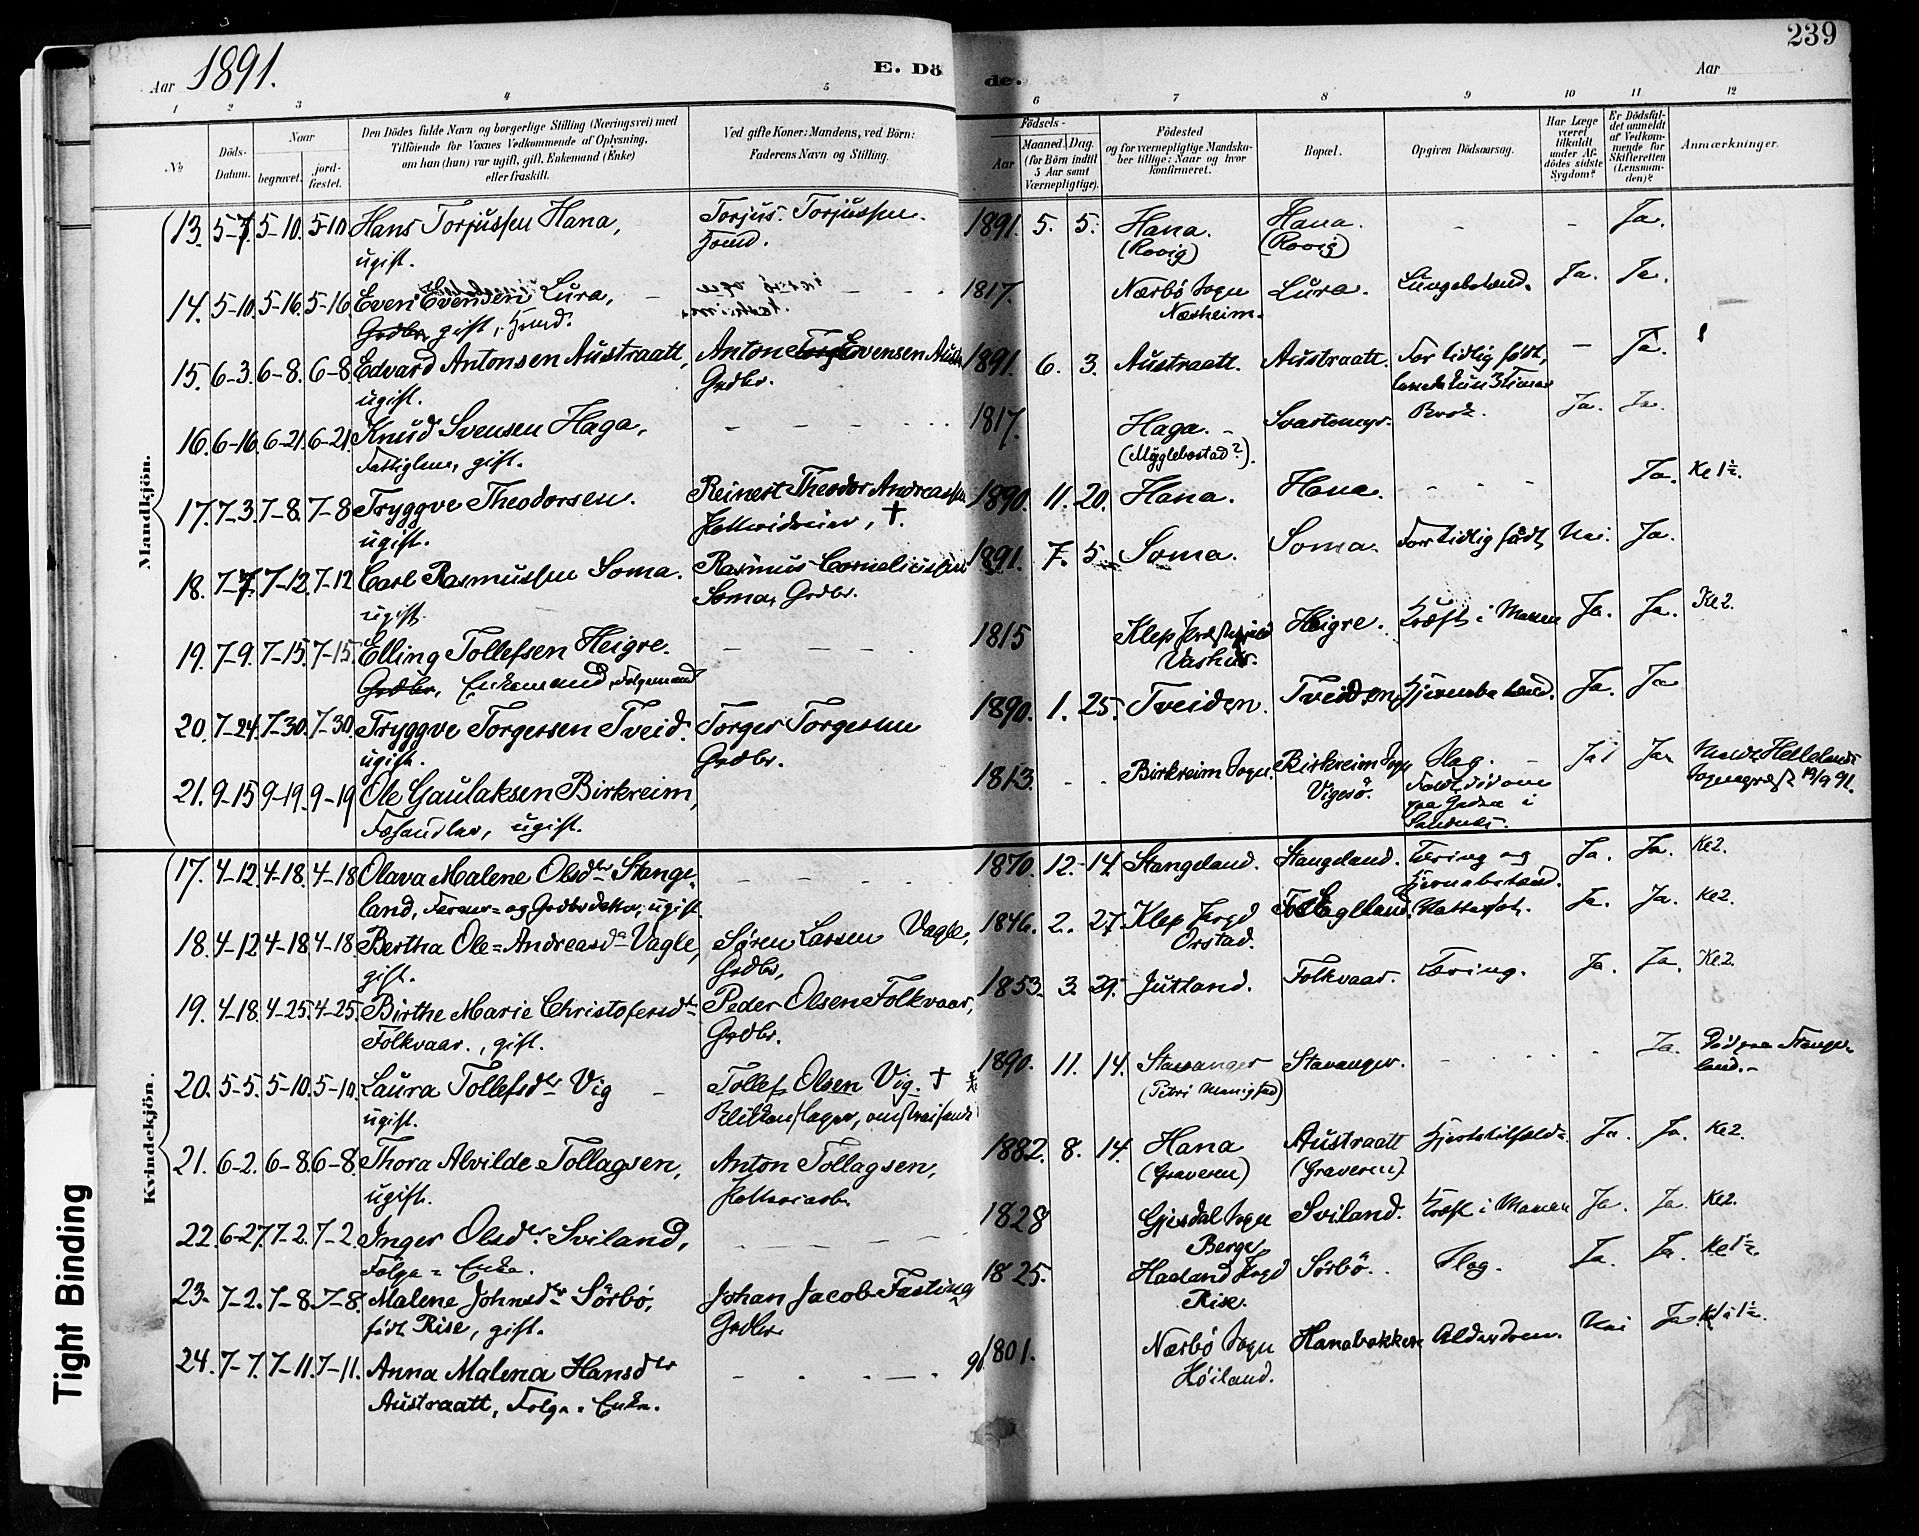 239
Aar 1891.
E. Dö de.
Aar
1 2 3 4 5 6 7 8 9 10 11 12
No
Döds-Datum.
Naar
begravet.
jord-fæstet.
Den Dödes fulde Navn og borgerlige Stilling (Næringsvei) med
Tilföiende for Voxnes Vedkommende af Oplysning,
om han (hun) var ugift, gift, Enkemand (Enke)
eller fraskilt.
Ved gifte Koner: Mandens, ved Börn:
Faderens Navn og Stilling.
Födsels-
Aar
Maaned. Dag.
(for Börn indtil
5 Aar samt
Værnepligtige).
Födested
og for værnepligtige Mandska-
ber tillige: Naar og hvor
konfirmeret.
Bopæl.
Opgiven Dödsaarsag.
Har Læge
været
tilkaldt
under Af-
dödes sidste
Sygdom?
Er Dödsfal-
det anmeldt
af Vedkom-
mende for
Skifteretten
(Lensman-
den)?
Anmærkninger.
Mandkjön.
13. 5-7. 5-10. 5-10 Hans Torjussen Hana, Torjus Torjussen 1891. 5. 5. Hana. Hana. - - Ja.
ugift. (Rovig) (Rovig)
14. 5-10. 5-16. 5-16 Even Evensen Lura, 1817. Nærbö Sogn Lura. Lungebetænd. Ja. Ja.
Grdbr. gift, Næsheim.
15. 6-3. 6-8. 6-8 Edvard Antonsen Austraatt, Anton Evensen 1891. 6. 3. Austraatt. Austraatt. For tidlig født, - Ja.
ugift. Grdbr. 3 Timer
16. 6-16. 6-21. 6-21. Knud Svensen Haga, 1817. Haga. Svartemyr. Brok. Ja. Ja.
gift. (Myglebostad?).
17. 7-3. 7-8. 7-8 Tryggve Theodorsen. Reinert Theodor Andreassen 1890. 11. 20. Hana. Hana. Ja. Kl 1½.
ugift. †.
18. 7-7. 7-12. 7-12 Carl Rasmussen Soma. Rasmus Corneliussen 1891. 7. 5. Soma. Soma. For tidlig født, Nei. Ja.
ugift. Soma, Grdbr.
19. 7-9. 7-15. 7-15. Elling Tollefsen Heigre. 1815 Klep Heigre. Kræft i Maven Ja. Ja. Kl 2.
Grdbr, Enkemand, Folgemand Vashus.
20. 7-24. 7-30. 7-30. Tryggve Torgersen Tveid. Torger Torgersen 1890. 1. 25. Tveiden. Tveiden Hjernebetænd. Ja. Ja
ugift. Grdbr.
21. 9-15 9-19. 9-19 Ole Gaulaksen Birkreim, 1813. - - Birkreim Sogn. Birkreim Sogn Slag. Ja! Ja. 19/9 91.
Fæhandler, ugift. Vigesö. Faldt död om
paa Gaden i
Sandnes.
Kvindekjön.
17. 4-12. 4-18. 4-18 Olava Malene Olsdtr Stange- 1870. 12. 14. Stangeland. Stangeland. Tæring og Ja. Ja. Kl 2.
land, Farver- og Grdbrdatter, ugift. Hjernebetænd.
18. 4-12 4-18 4-18. Bertha Ole-Andreasdr Vagle, Søren Larsen Vagle, 1846. 2. 27. Klep Ja. Ja. Kl 2.
gift. Grdbr, Orstad.
19. 4-18. 4-25. 4-25. Birthe Marie Christofersdtr Peder Olsen Folkvaar, 1853. 3. 29. Jutland. Folkvaar. Tæring. Ja. Ja. Kl 2.
Folkvaar., gift. Grdbr.
20. 5-5. 5-10. 5-10. Laura Tollefsdtr Vig - Tollef Olsen Vig. † 1890. 11. 14. Stavanger Stavanger. Ja. Död paa Stange-
ugift. Blikkenslager, (Petri Menighed) land.-
21. 6-2. 6-8. 6-8. Thora Alvilde Tollagsen, Anton Tollagsen, 1882. 8. 14. Hana Austraatt Hjertetilfælde Ja. Ja. Kl 2.
ugift. (Graveren) (Graveren)
22. 6-27. 7-2. 7-2. Inger Olsdtr Sviland, 1828 Gjesdal Sogn Sviland. Kræft i Maven Ja. Ja. Kl 2.
Folge-Enke. Berge.
23. 7-2. 7-8. 7-8. Malene Johnsdtr Sörbö, Johan Jacob Fasting 1825. Haaland Sörbö. Slag. Ja. Ja. Kl 1½.
født Rise, gift. Grdbr. Rise.
24. 7-7. 7-11. 7-11. Anna Malena Hansdtr 1801. Nærbö Sogn Hanabakken Alderdom. Nei Ja.
Austraatt, Folge-Enke. Höiland.
Tight Binding